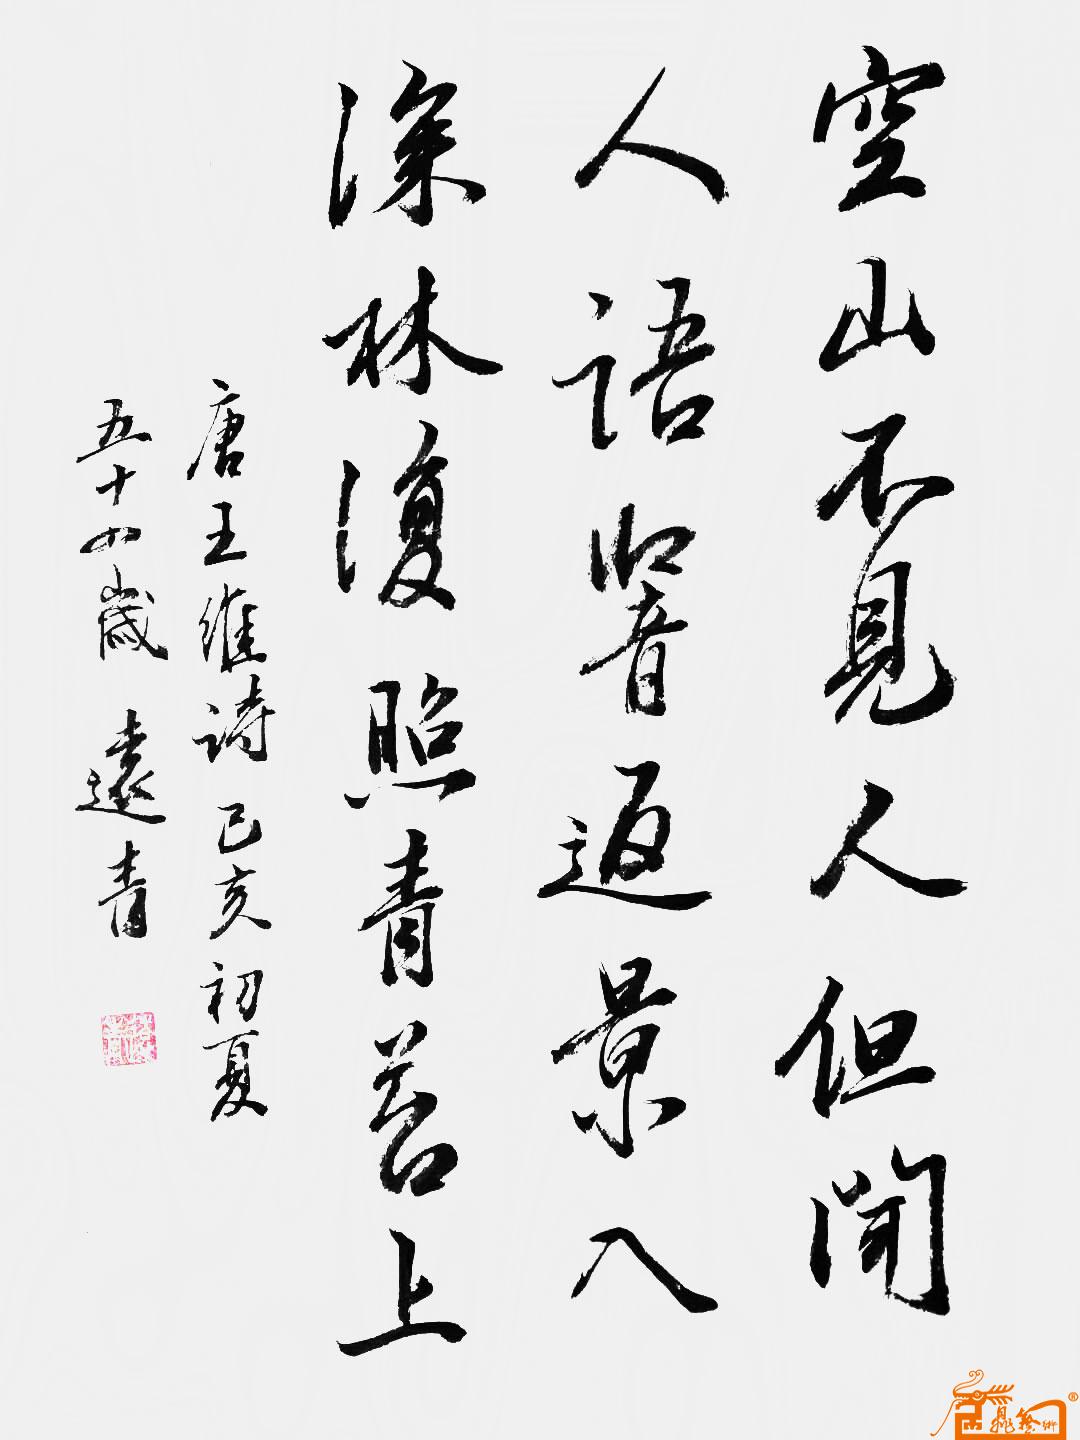 空山不見人但聞
人語響返景入
深林復照青苔上
唐王維詩己亥初夏
五十四歲遠青